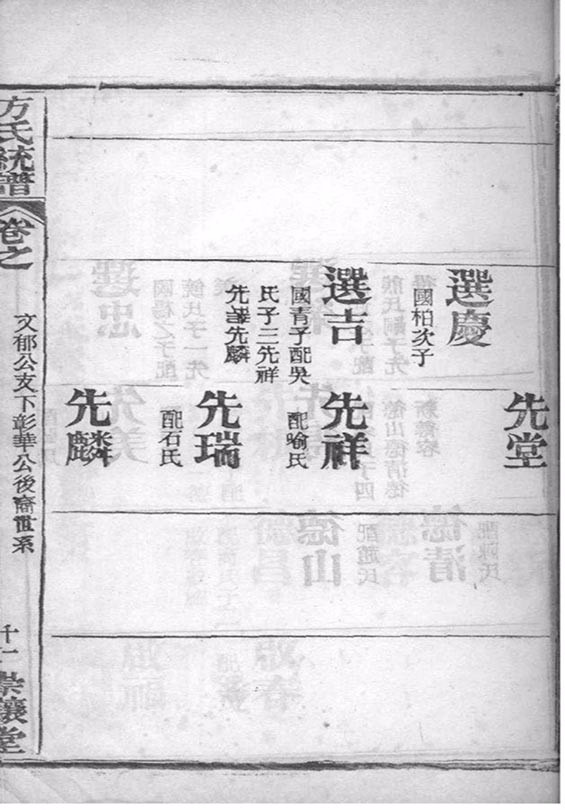 先堂
選慶
國柏次子
選吉
國青子配吳
氏子三先祥
先瑞先麟
先祥
配喻氏
先瑞
配石氏
先麟
方氏統譜
卷之
文郁公支下彰華公後裔世系